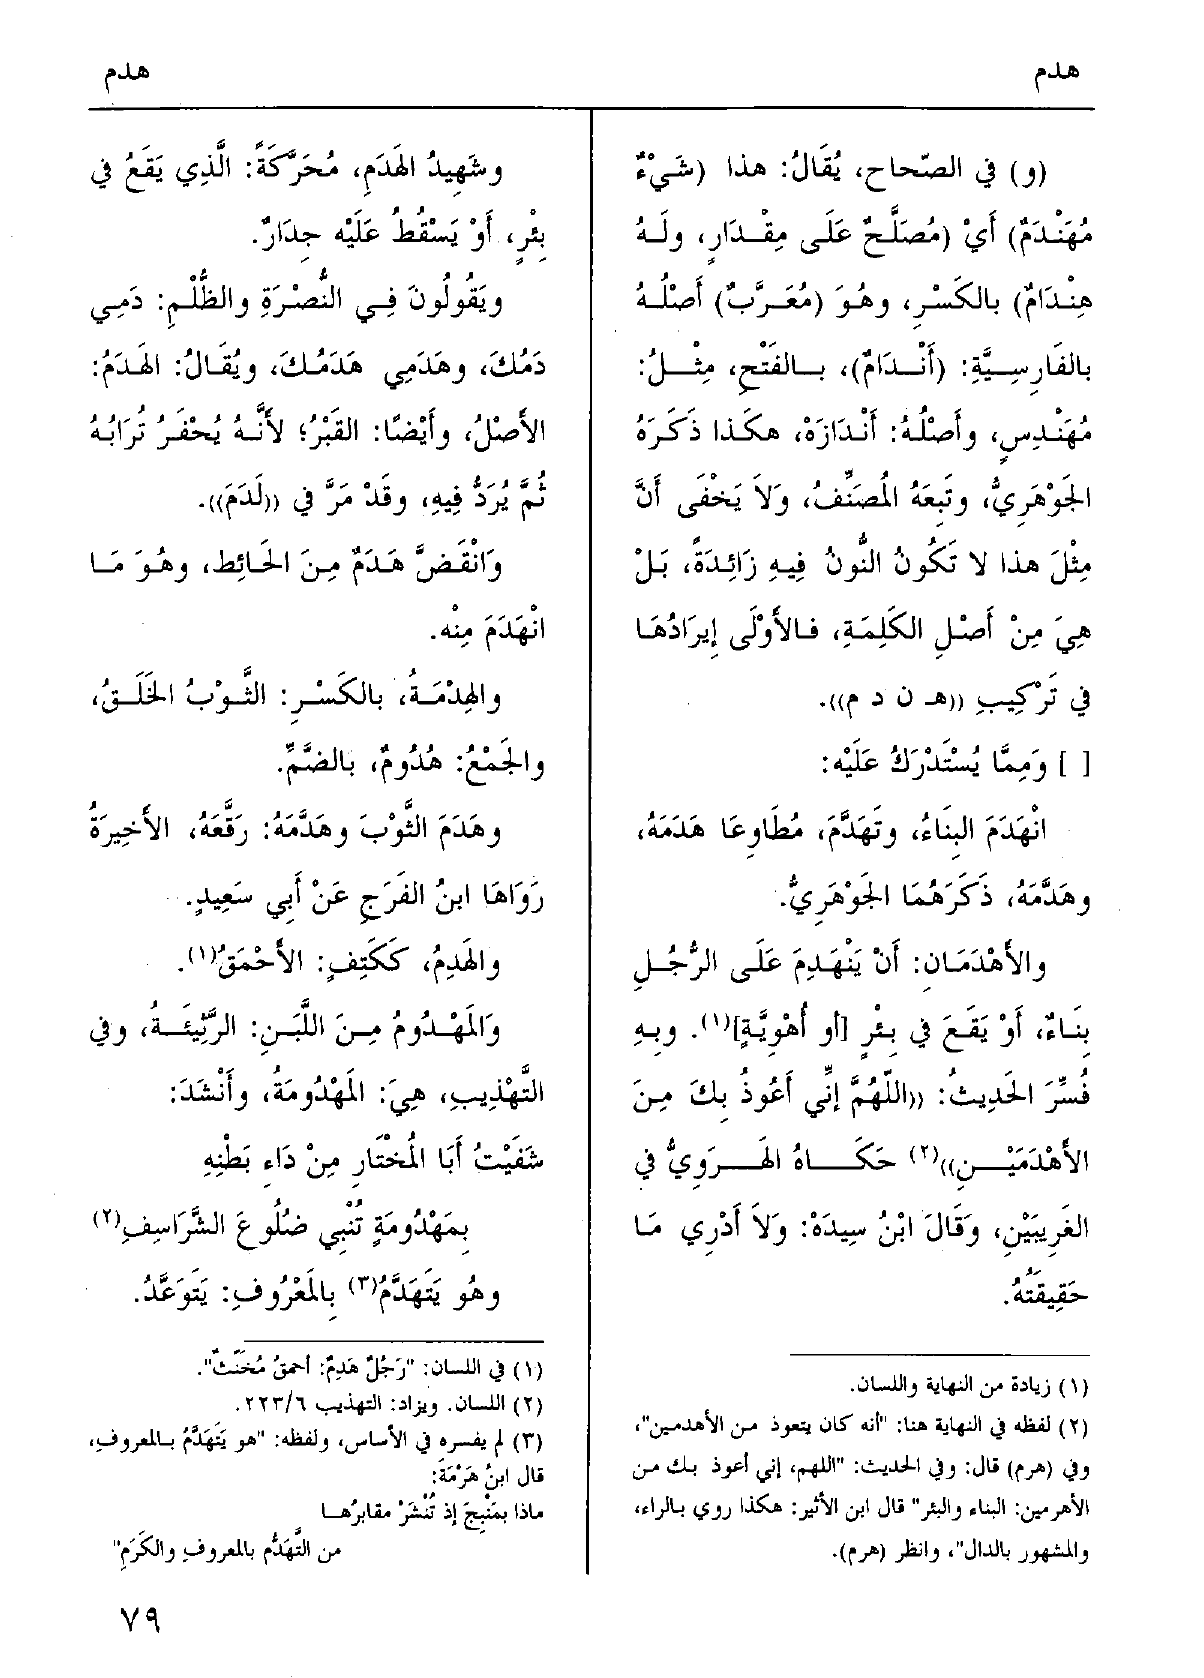 هدم
هدم
(و) في الصّحاح، يُقَالُ: هذا (شَيْءٌ
مُهَنْدَمٌ) أَيْ (مُصَلَّحٌ عَلَى مِقْدَارٍ، ولَهُ
هِنْدَامٌ) بالكَسْرِ، وهُوَ (مُعَرَّبٌ) أَصْلُهُ
بالفَارِسِيَّةِ: (أَنْدَامٌ)، بالفَتْحِ، مِثْلُ:
مُهَنْدِسٍ، وأَصْلُهُ: أَنْدَازَهْ، هكَذا ذَكَرَهُ
الجَوْهَرِيُّ، وتَبِعَهُ المُصَنِّفُ، ولاَ يَخْفَى أَنَّ
مِثْلَ هذا لا تَكُونُ النُّونُ فِيهِ زَائِدَةً، بَلْ
هِيَ مِنْ أَصْلِ الكَلِمَةِ، فالأَوْلَى إِيرَادُهَا
في تَرْكِيبِ ((هـ ن د م)).
[ ] وَمِمَّا يُسْتَدْرَكُ عَلَيْه:
انْهَدَمَ البِنَاءُ، وتَهَدَّمَ، مُطَاوِعَا هَدَمَهُ،
وهَدَّمَهُ، ذَكَرَهُمَا الجَوْهَرِيُّ.
والأَهْدَمَانِ: أَنْ يَنْهَدِمَ عَلَى الرَّجُلِ
بِنَاءٌ، أَوْ يَقَعَ في بِئْرٍ [أو أُهْوِيَّةٍ](١). وبِهِ
فُسِّرَ الحَدِيثُ: ((اللَّهُمَّ إِنِّي أَعُوذُ بِكَ مِنَ
الأَهْدَمَيْنِ))(٢) حَكَاهُ الهَرَوِيُّ في
الغَرِيبَيْنِ، وَقَالَ ابْنُ سِيدَهْ: وَلاَ أَدْرِي مَا
حَقِيقَتُهُ.
(١) زيادة من النهاية واللسان.
(٢) لفظه في النهاية هنا: "أنه كان يتعوذ من الأهدمين"،
وفي (هرم) قال: وفي الحديث: "اللهم، إني أعوذ بك من
الأهرمين: البناء والبئر" قال ابن الأثير: هكذا روي بالراء،
والمشهور بالدال"، وانظر (هرم).
وشَهِيدُ الهَدَمِ، مُحَرَّكَةً: الَّذِي يَقَعُ في
بِئْرٍ، أَوْ يَسْقُطُ عَلَيْه جِدَارٌ.
ويَقُولُونَ فِي النُّصْرَةِ والظُّلْمِ: دَمِي
دَمُكَ، وهَدَمِي هَدَمُكَ، ويُقَالُ: الهَدَمُ:
الأَصْلُ، وأَيْضًا: القَبْرُ؛ لأَنَّهُ يُحْفَرُ تُرَابُهُ
ثُمَّ يُرَدُّ فِيهِ، وقَدْ مَرَّ في ((لَدَمَ)).
وَانْقَضَّ هَدَمٌ مِنَ الحَائِط، وهُوَ مَا
انْهَدَمَ مِنْه.
والهِدْمَةُ، بالكَسْرِ: الثَّوْبُ الخَلَقُ،
والجَمْعُ: هُدُومٌ، بالضَّمِّ.
وهَدَمَ الثَّوْبَ وهَدَّمَهُ: رَقَّعَهُ، الأَخِيرَةُ
رَوَاهَا ابنُ الفَرَجِ عَنْ أَبِي سَعِيدٍ.
والهَدِمُ، كَكَتِفٍ: الأَحْمَقُ(١).
وَالمَهْدُومُ مِنَ اللَّبَنِ: الرَّثِيئَةُ، وفي
التَّهْذِيبِ، هِيَ: المَهْدُومَةُ، وأَنْشَدَ:
شَفَيْتُ أَبَا المُخْتَارِ مِنْ دَاءِ بَطْنِهِ
بِمَهْدُومَةٍ تُنْبِي ضُلُوعَ الشَّرَاسِفِ(٢)
وهُو يَتَهَدَّمُ(٣) بِالمَعْرُوفِ: يَتَوَعَّدُ.
(١) في اللسان: "رَجُلٌ هَدِمٌ: أحمقُ مُخَنَّثٌ".
(٢) اللسان. ويزاد: التهذيب ٢٢٣/٦.
(٣) لم يفسره في الأساس، ولفظه: "هو يَتَهَدَّمُ بالمعروفِ،
قال ابنُ هَرْمَةَ:
ماذا بمَنْبِجَ إذ تُنْشَرْ مقابرُها
من التَّهَدُّمِ بالمعروفِ والكَرَمِ"
٧٩